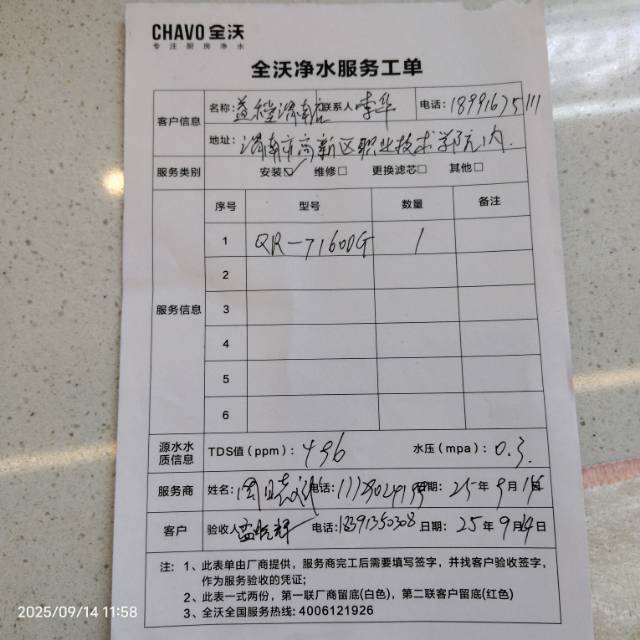 CHAVO 全沃
专注厨房净水
全沃净水服务工单
客户信息 名称: 渭南店 联系人 李华 电话: 18991675111
地址: 渭南市高新区职业技术学院内.
服务类别 安装☑ 维修□ 更换滤芯□ 其他□
服务信息 序号 型号 数量 备注
1 QR-71600G 1
2
3
4
5
6
源水水质信息 TDS值(ppm): 496 水压(mpa): 0.3
服务商 姓名: 电话: 日期: 25年9月14日
客户 验收人 电话: 18391350308 日期: 25年9月14日
注: 1、此表单由厂商提供，服务商完工后需要填写签字，并找客户验收签字，
作为服务验收的凭证;
2、此表一式两份，第一联厂商留底(白色)，第二联客户留底(红色)
3、全沃全国服务热线: 4006121926
2025/09/14 11:58